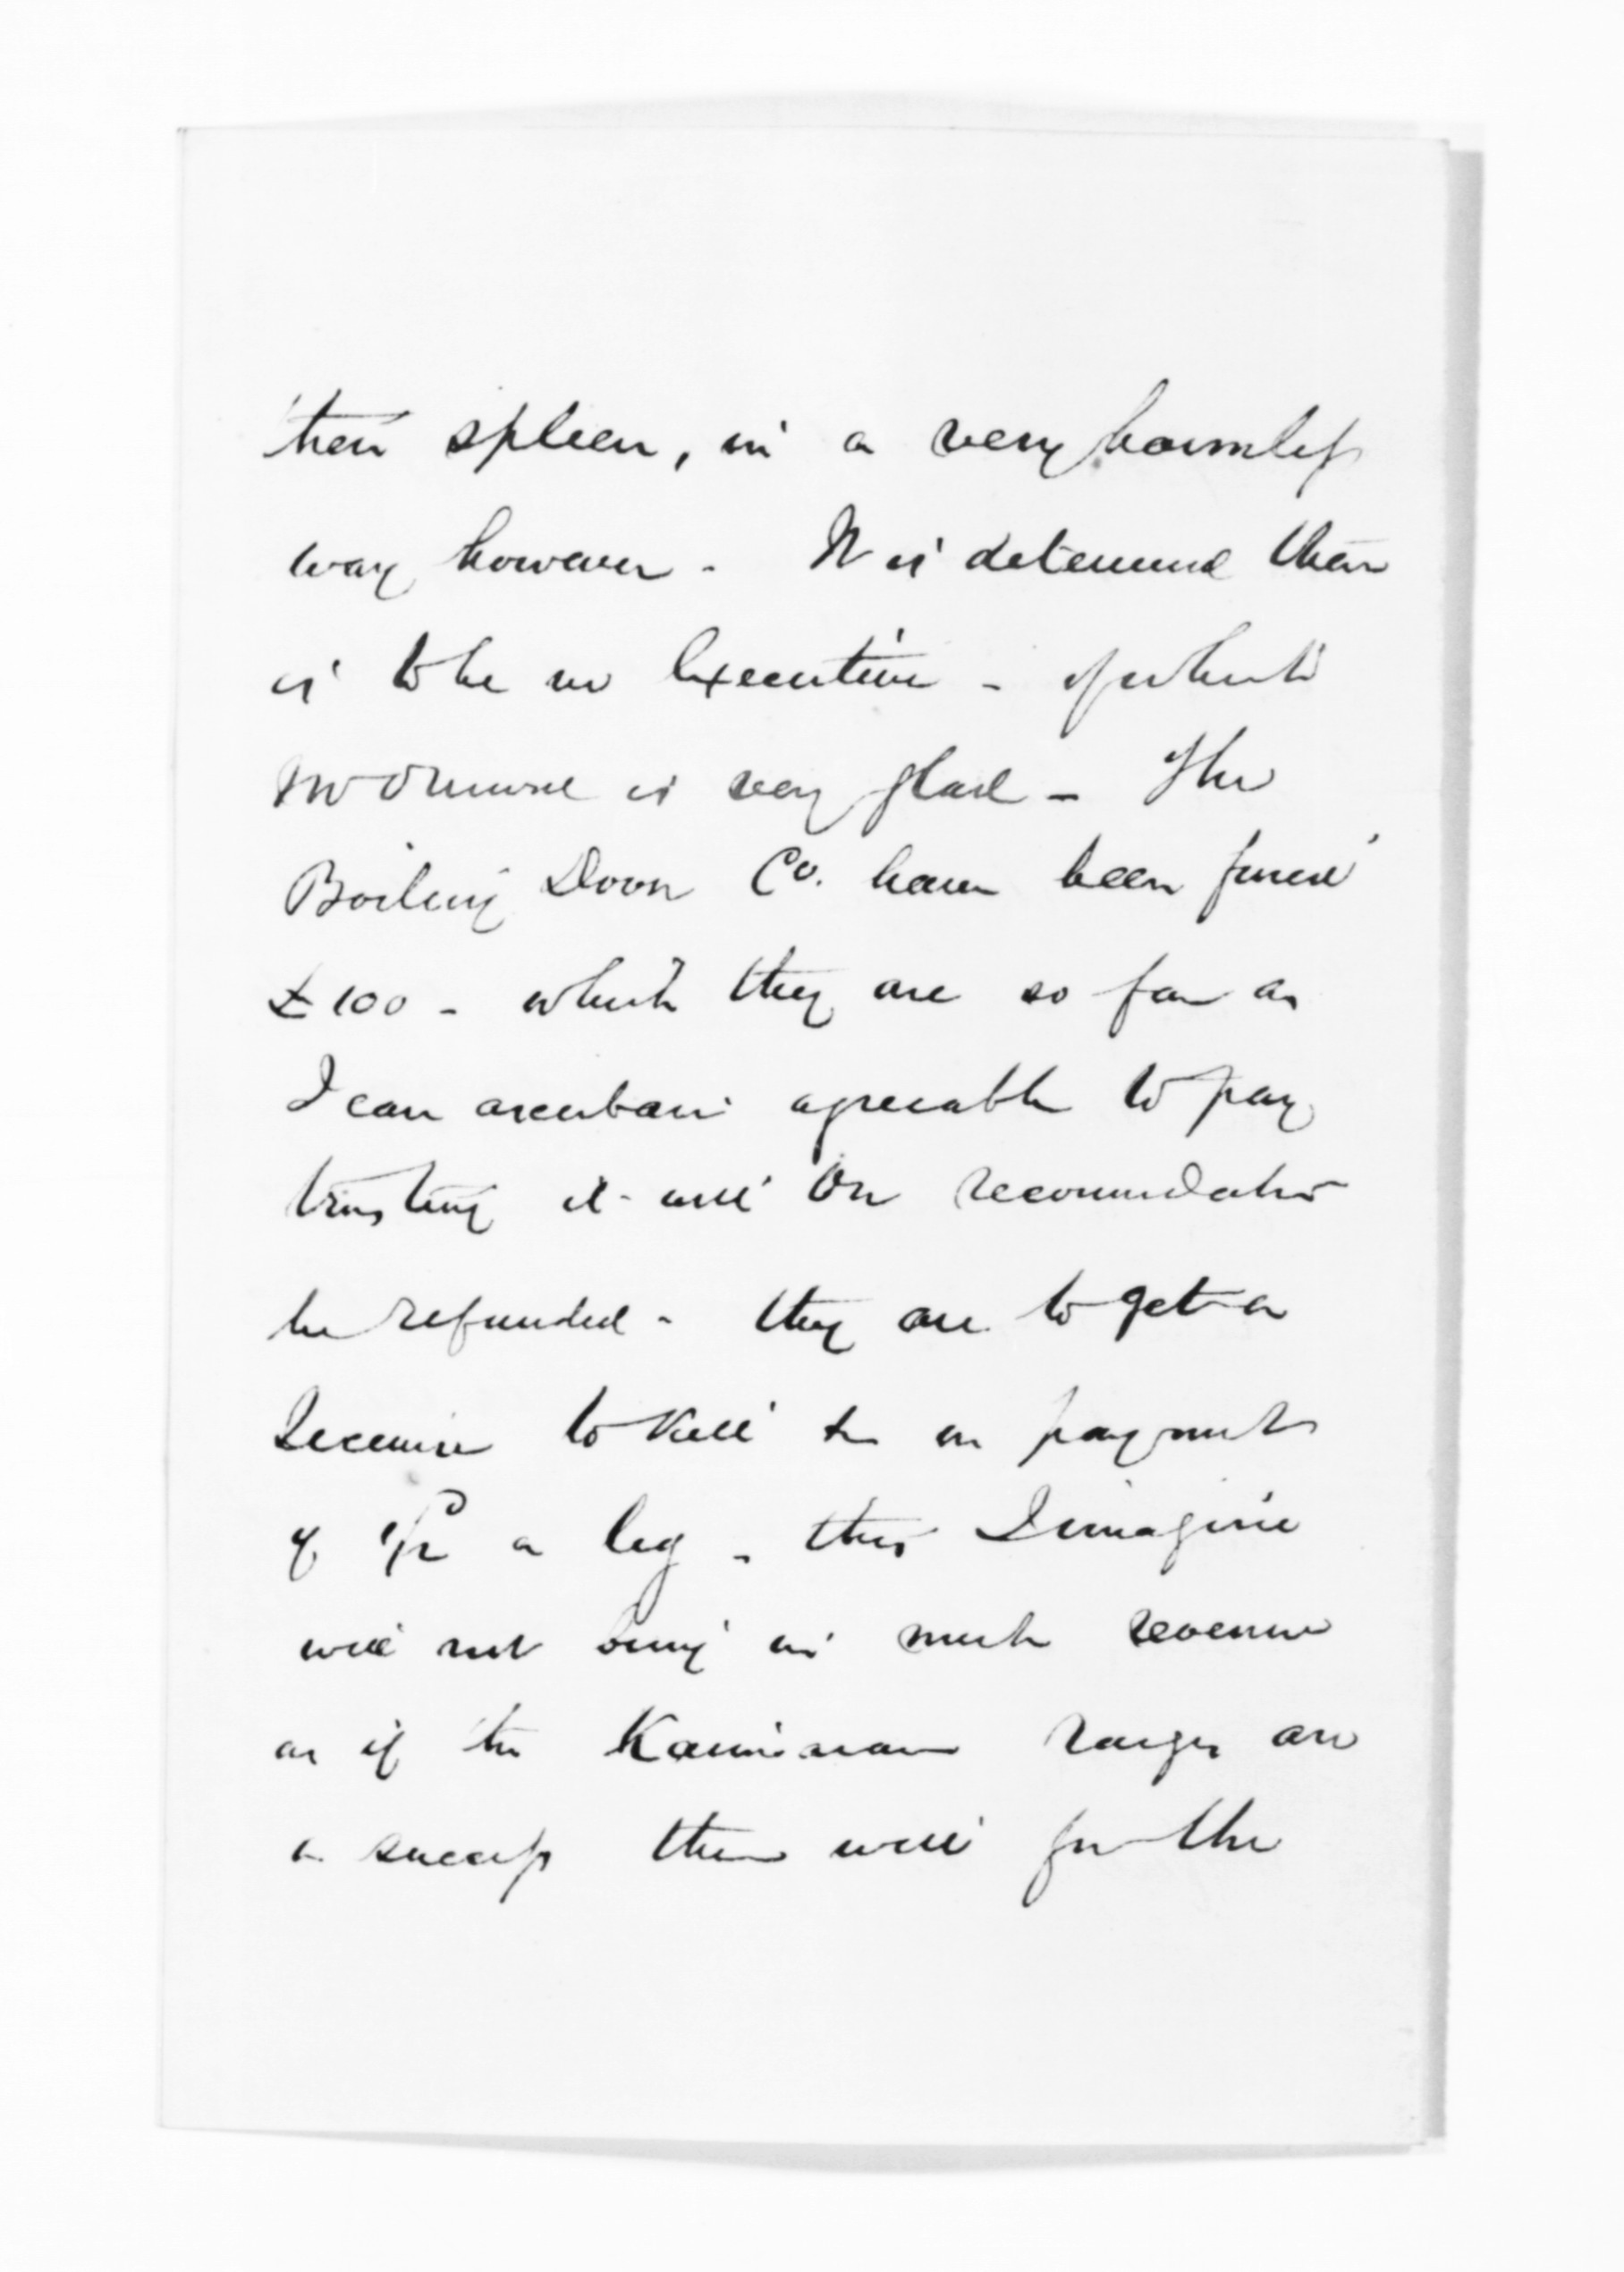 their spleen, in a very harmless
way however - It is determined there
is to be no Executive - of which
Mr Ormond is very glad - The
Boiling Down Co. have been fined
£100 - which they are so far as
I can ascertain agreeable to pay
trusting it will on recommendation
be refunded - they are to get a
License to kill & on payment
of 1/2 a leg - this I imagine
will not bring in much revenue
as if the races are
a success there will for the